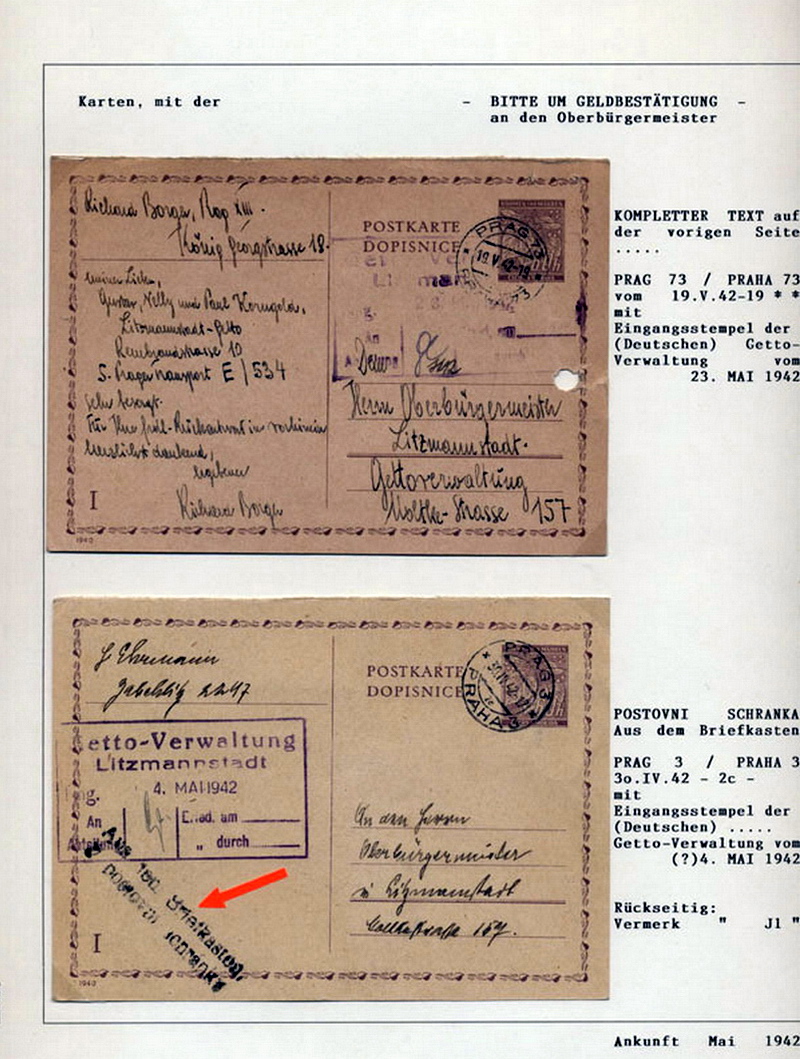 Karten, mit der - BITTE UM GELDBESTÄTIGUNG -
an den Oberbürgermeister
Richard Borger, Prag XIII.
König Georgstrasse 18.
meiner Lieben,
Gustav, Nelly und Paul Korngold,
Litzmannstadt-Getto
Rembrandstrasse 10
5. Pragertransport E/534
sehr besorgt.
Für Ihre Rückantwort im vorhinein
herzlichst dankend,
ergebener
Richard Borger
I
1940
POSTKARTE
DOPISNICE
PRAG 73
19.V.42-19
An
Herrn Oberbürgermeister
Litzmannstadt.
Gettoverwaltung
Moltke-Strasse 157
KOMPLETTER TEXT auf
der vorigen Seite
.....
PRAG 73 / PRAHA 73
vom 19.V.42-19 * *
mit
Eingangsstempel der
(Deutschen) Getto-
Verwaltung vom
23. MAI 1942
Ehrmann
2247
POSTKARTE
DOPISNICE
PRAG 3
30.IV.42
PRAHA 3
Getto-Verwaltung
Litzmannstadt
4. MAI 1942
An
Erled. am
" durch
Aus Briefkasten
poštovní schránka
An den Herrn
Oberbürgermeister
Litzmannstadt
157.
I
1940
POSTOVNI SCHRANKA
Aus dem Briefkasten
PRAG 3 / PRAHA 3
3o.IV.42 - 2c -
mit
Eingangsstempel der
(Deutschen) .....
Getto-Verwaltung vom
(?)4. MAI 1942
Rückseitig:
Vermerk " J1 "
Ankunft Mai 1942